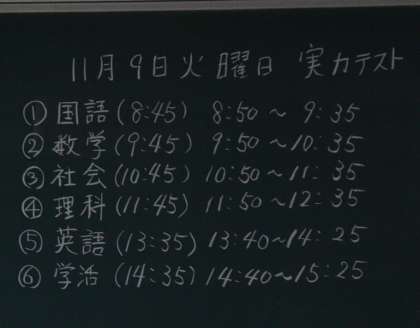 11月9日火曜日 実力テスト
① 国語 (8:45) 8:50 ~ 9:35
② 数学 (9:45) 9:50 ~ 10:35
③ 社会 (10:45) 10:50 ~ 11:35
④ 理科 (11:45) 11:50 ~ 12:35
⑤ 英語 (13:35) 13:40 ~ 14:25
⑥ 学活 (14:35) 14:40 ~ 15:25